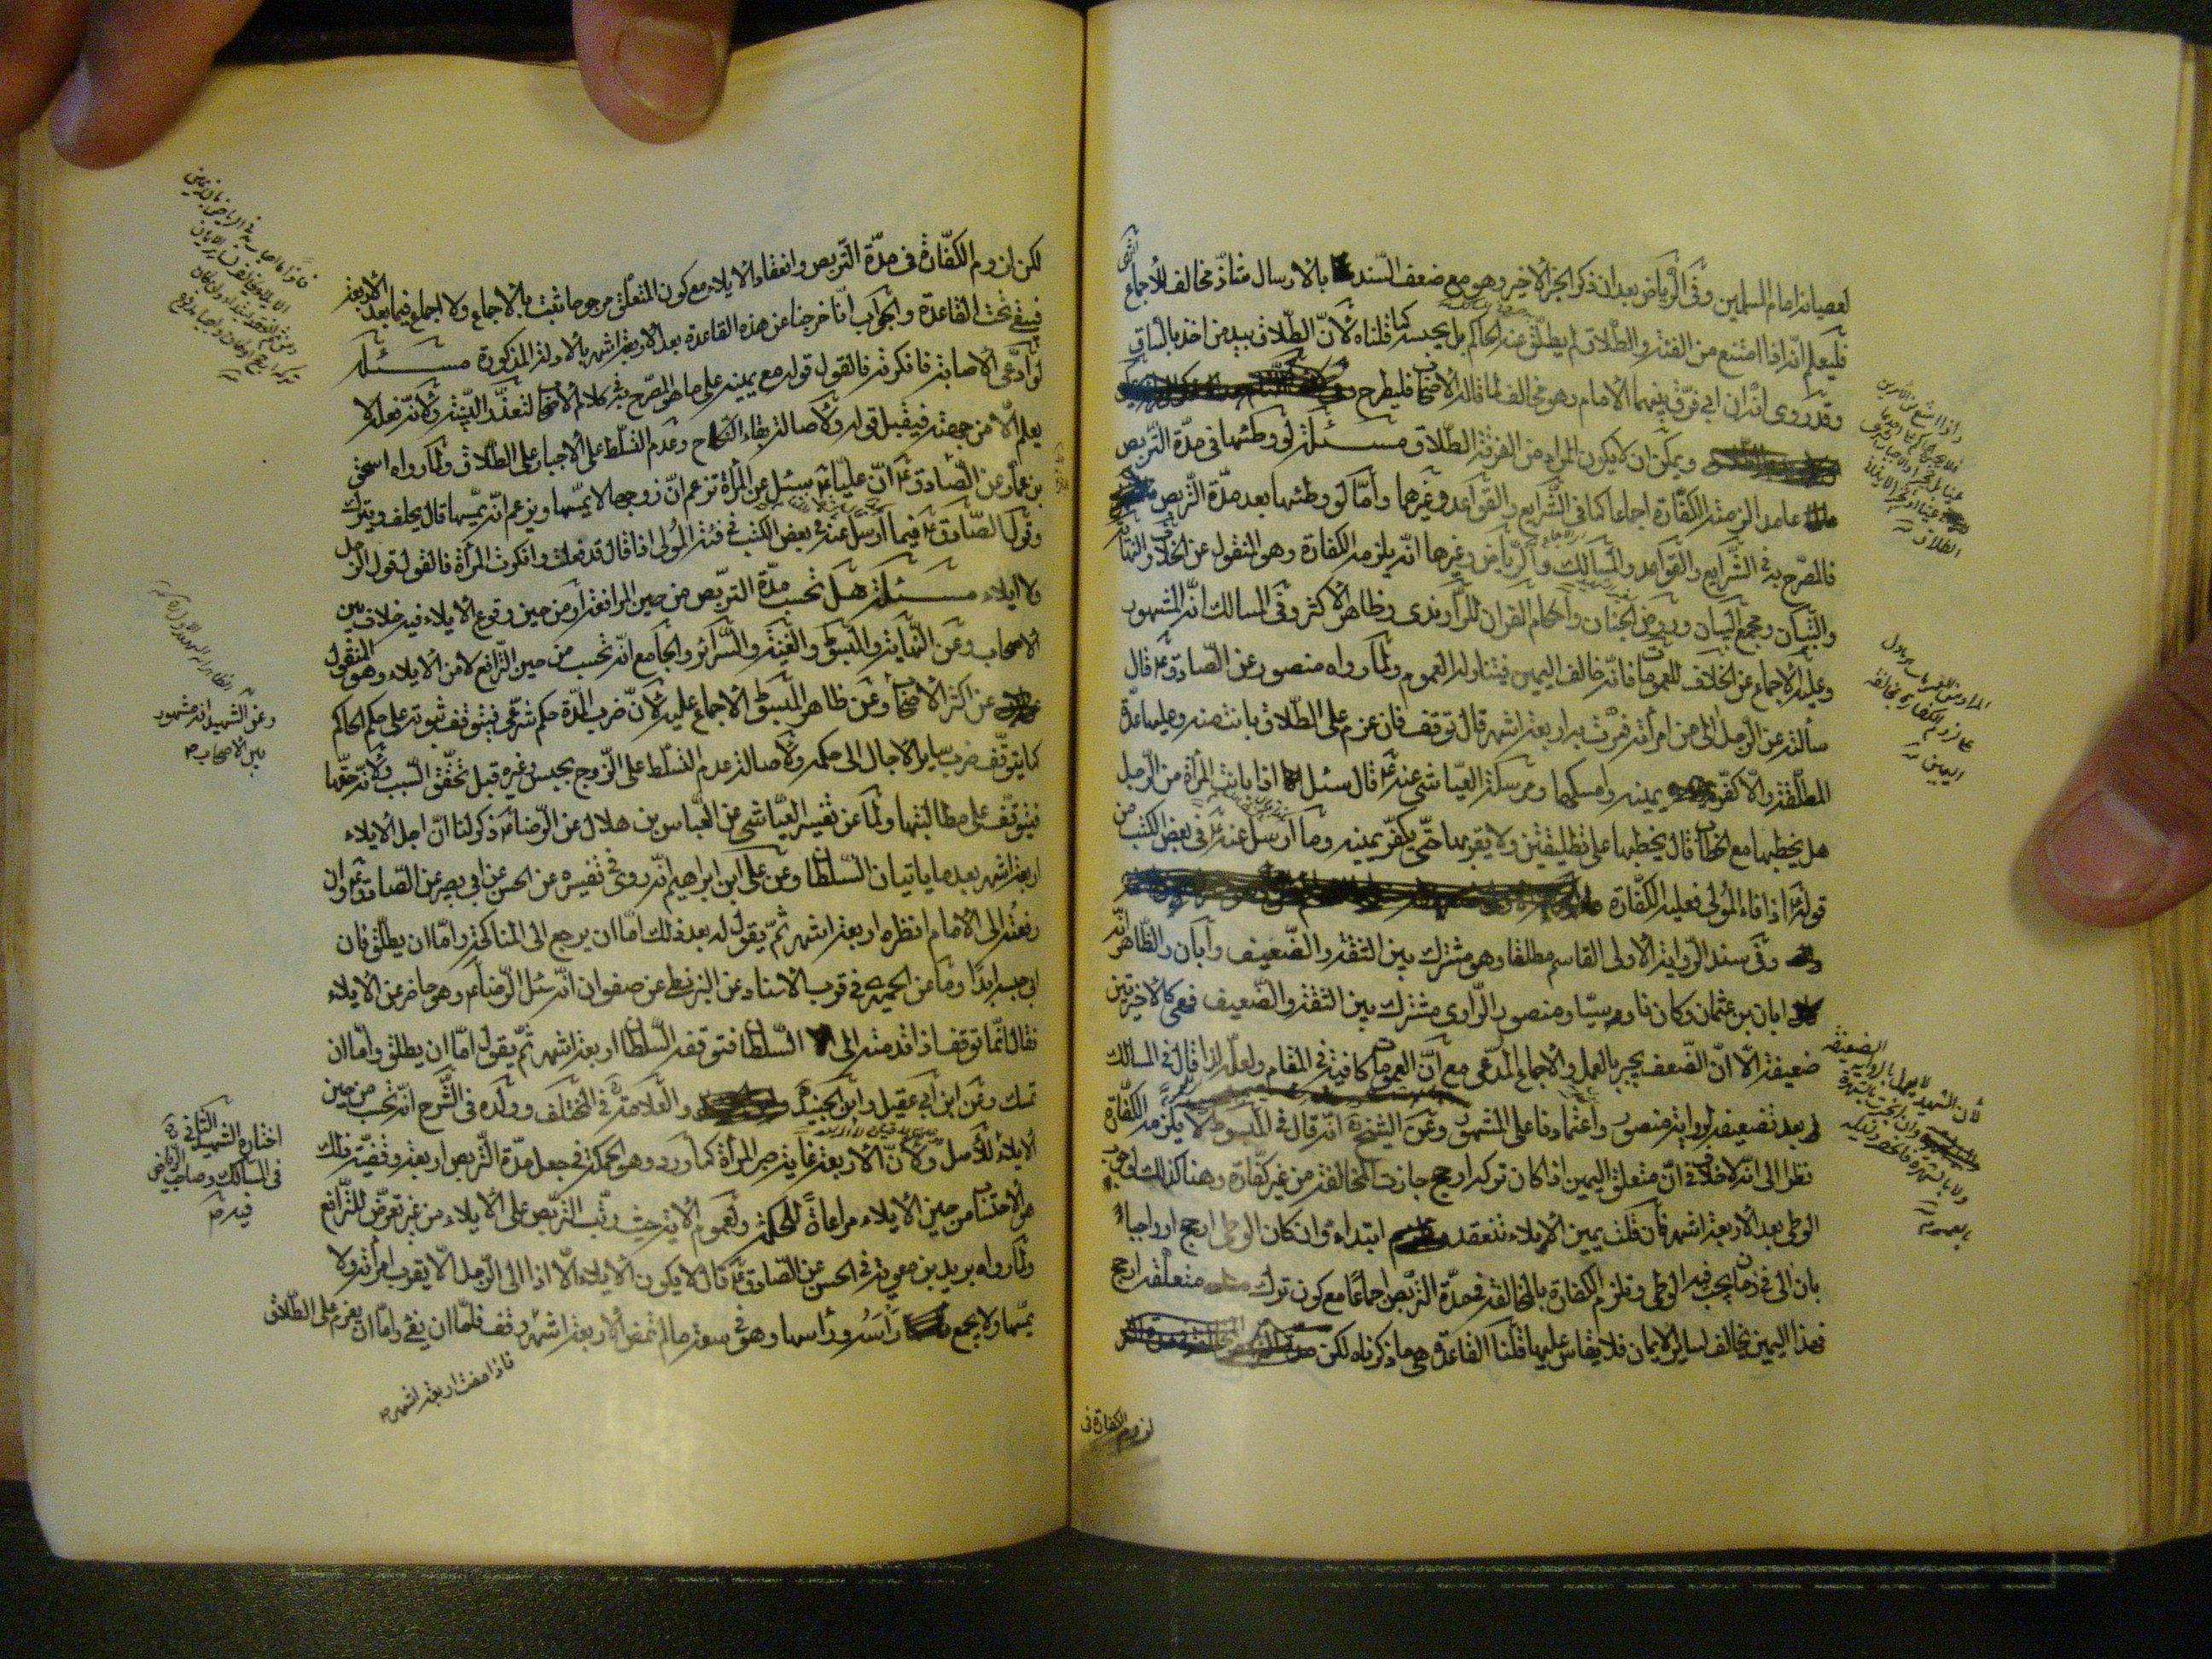 لعصيانه امام المسلمين وفى الرياض بعد ان ذكر الخبر الاخير وهو مع ضعف السند بالارسال شاذ مخالف للاجماع
فليعلم انه اذا امتنع من الفئة والطلاق لم يطلق عنه الحاكم بل يحبسه كما قلناه لأن الطلاق بيد من اخذ بالساق
وقد روى انه ان ابى فرق بينهما الامام وهو مخالف لما قاله الاصحاب فليطرح
ويمكن ان لا يكون المراد من الفرقة الطلاق مسئلة لو وطئها فى مدة التربص
عامدا لزمته الكفارة اجماعا كما فى الشرايع والقواعد وغيرها وأما لو وطئها بعد مدة التربص
فالمصرح به فى الشرايع والقواعد والمسالك والرياض وغيرها انه يلزمه الكفارة وهو المنقول عن الخلاف والنهاية
والتبيان ومجمع البيان وروض الجنان واحكام القران للراوندى وظاهر الاكثر وفى المسالك انه المشهور
وعليه الاجماع عن الخلاف للعمومات فانه خالف اليمين فيتناوله العموم ولما رواه منصور عن الصادق ع قال
سألته عن الرجل الى من امرأته فمرت به اربعة اشهر قال توقف فان عزم على الطلاق بانت منه وعليها عدة
المطلقة والا كفر يمينه وامسكها ومرسلة العياشى عنه ع قال سئل اذا بانت المرأة من الرجل
هل يخطبها مع الخطاب قال يخطبها على تطليقتين ولا يقربها حتى يكفر يمينه وما ارسل عنه ع فى بعض الكتب من
قوله ع اذا فاء المولى فعليه الكفارة
وفى سند الرواية الاولى القاسم مطلقا وهو مشترك بين الثقة والضعيف وأبان والظاهر انه
ابان بن عثمان وكان ناووسيا ومنصور الراوى مشترك بين الثقة والضعيف فهى كالاخيرتين
ضعيفة الا ان الضعف يجبر بالعمل والاجماع المدعى مع أن العمومات كافية فى المقام ولعله لذا قال فى المسالك
بعد تضعيفه لرواية منصور واعتمادنا على المشهور وعن الشيخ انه قال فى المبسوط لا يلزمه الكفارة
نظرا الى انه لا خلاف فى ان متعلق اليمين اذا كان تركه ارجح جازت المخالفة من غير كفارة وهنا كذلك لوجوب
الوطى بعد الاربعة اشهر فان قلت يمين الايلاء تنعقد ابتداء وان كان الوطى ارجح او واجبا
بان الى فى زمان يجب فيه الوطى وتلزم الكفارة بالمخالفة فى مدة التربص اجماعا مع كون ترك متعلقه ارجح
فهذا اليمين يخالف لساير الايمان فلا يقاس عليها قلنا القاعدة هى ما ذكرناه لكن
لزوم الكفارة فى
لكن لزوم الكفارة فى مدة التربص وانعقاد الايلاء مع كون المتعلق مرجوحا ثبت بالاجماع ولا اجماع فيما بعد الاربعة
فيبقى تحت القاعدة والجواب انا خرجنا عن هذه القاعدة بعد الاربعة اشهر بالادلة المذكورة مسئلة
لو ادعى الاصابة فانكرته فالقول قوله مع يمينه على ما هو المصرح به فى كلام الاصحاب لتعذر البينة ولأنه فعل لا
يعلم الا من جهته فيقبل قوله ولأصالة بقاء النكاح وعدم التسلط على الاجبار على الطلاق ولما رواه اسحق
بن عمار عن الصادق ع ان عليا ع سئل عن المرأة تزعم ان زوجها لا يمسها ويزعم انه يمسها قال يحلف ويترك
وقول الصادق ع فيما ارسل عنه فى بعض الكتب فى فئة المولى اذا قال قد فعلت وانكرت المرأة فالقول قول الرجل
ولا ايلاء مسئلة هل تحسب مدة التربص من حين المرافعة او من حين وقوع الايلاء فيه خلاف بين
الاصحاب وعن النهاية والمبسوط والغنية والسرائر والجامع انه تحسب من حين الترافع لا من الايلاء وهو المنقول
عن اكثر الاصحاب وعن ظاهر المبسوط الاجماع عليه لأن ضرب المدة حكم شرعى فيتوقف ثبوته على حكم الحاكم
كما يتوقف ضرب ساير الاجال الى حكمه ولأصالة عدم التسلط على الزوج بحبس وغيره قبل تحقق السبب ولأنه حقها
فيتوقف على مطالبتها ولما عن تفسير العياشى عن العباس بن هلال عن الرضا ع ذكر لنا ان اجل الايلاء
اربعة اشهر بعد ما ياتيان السلطان وعن على ابن ابراهيم انه روى فى تفسيره عن الحسن عن ابى بصير عن الصادق ع وان
رفعته الى الامام انظره اربعة اشهر ثم يقول له بعد ذلك اما ان يرجع الى المناكحة واما ان يطلق فان
ابى حبسه ابدا وما عن الحميرى فى قرب الاسناد عن البزنطى عن صفوان انه سئل الرضا ع وهو حاضر عن الايلاء
فقال انما توقف اذا قدمته الى السلطان فتوقفه السلطان اربعة اشهر ثم يقول اما ان يطلق واما ان
تمسك وعن ابن ابى عقيل وابن الجنيد والعلامة فى المختلف وولده فى الشرح انه تحسب من حين
الايلاء للأصل ولأن الاربعة غاية صبر المرأة كما ورد وهو الحكمة فى جعل مدة التربص اربعة وقضية ذلك
هو الاحتساب من حين الايلاء مراعاة للحكمة ولعموم الاية حيث رتب التربص على الايلاء من غير تعرض للترافع
ولما رواه بريد بن معوية فى الحسن عن الصادق ع قال لا يكون الايلاء الا اذا الى الرجل الا يقرب امرأته ولا
يمسها ولا يجمع رأسه ورأسها وهو فى سعة ما لم تمض الاربعة اشهر وقف فلما ان يفئ واما ان يعزم على الطلاق
فاذا مضت اربعة اشهر
وعن الشهيد انه مشهور
بين الاصحاب
اختاره الشهيد الثانى
فى المسالك وصاحب الرياض
فيه